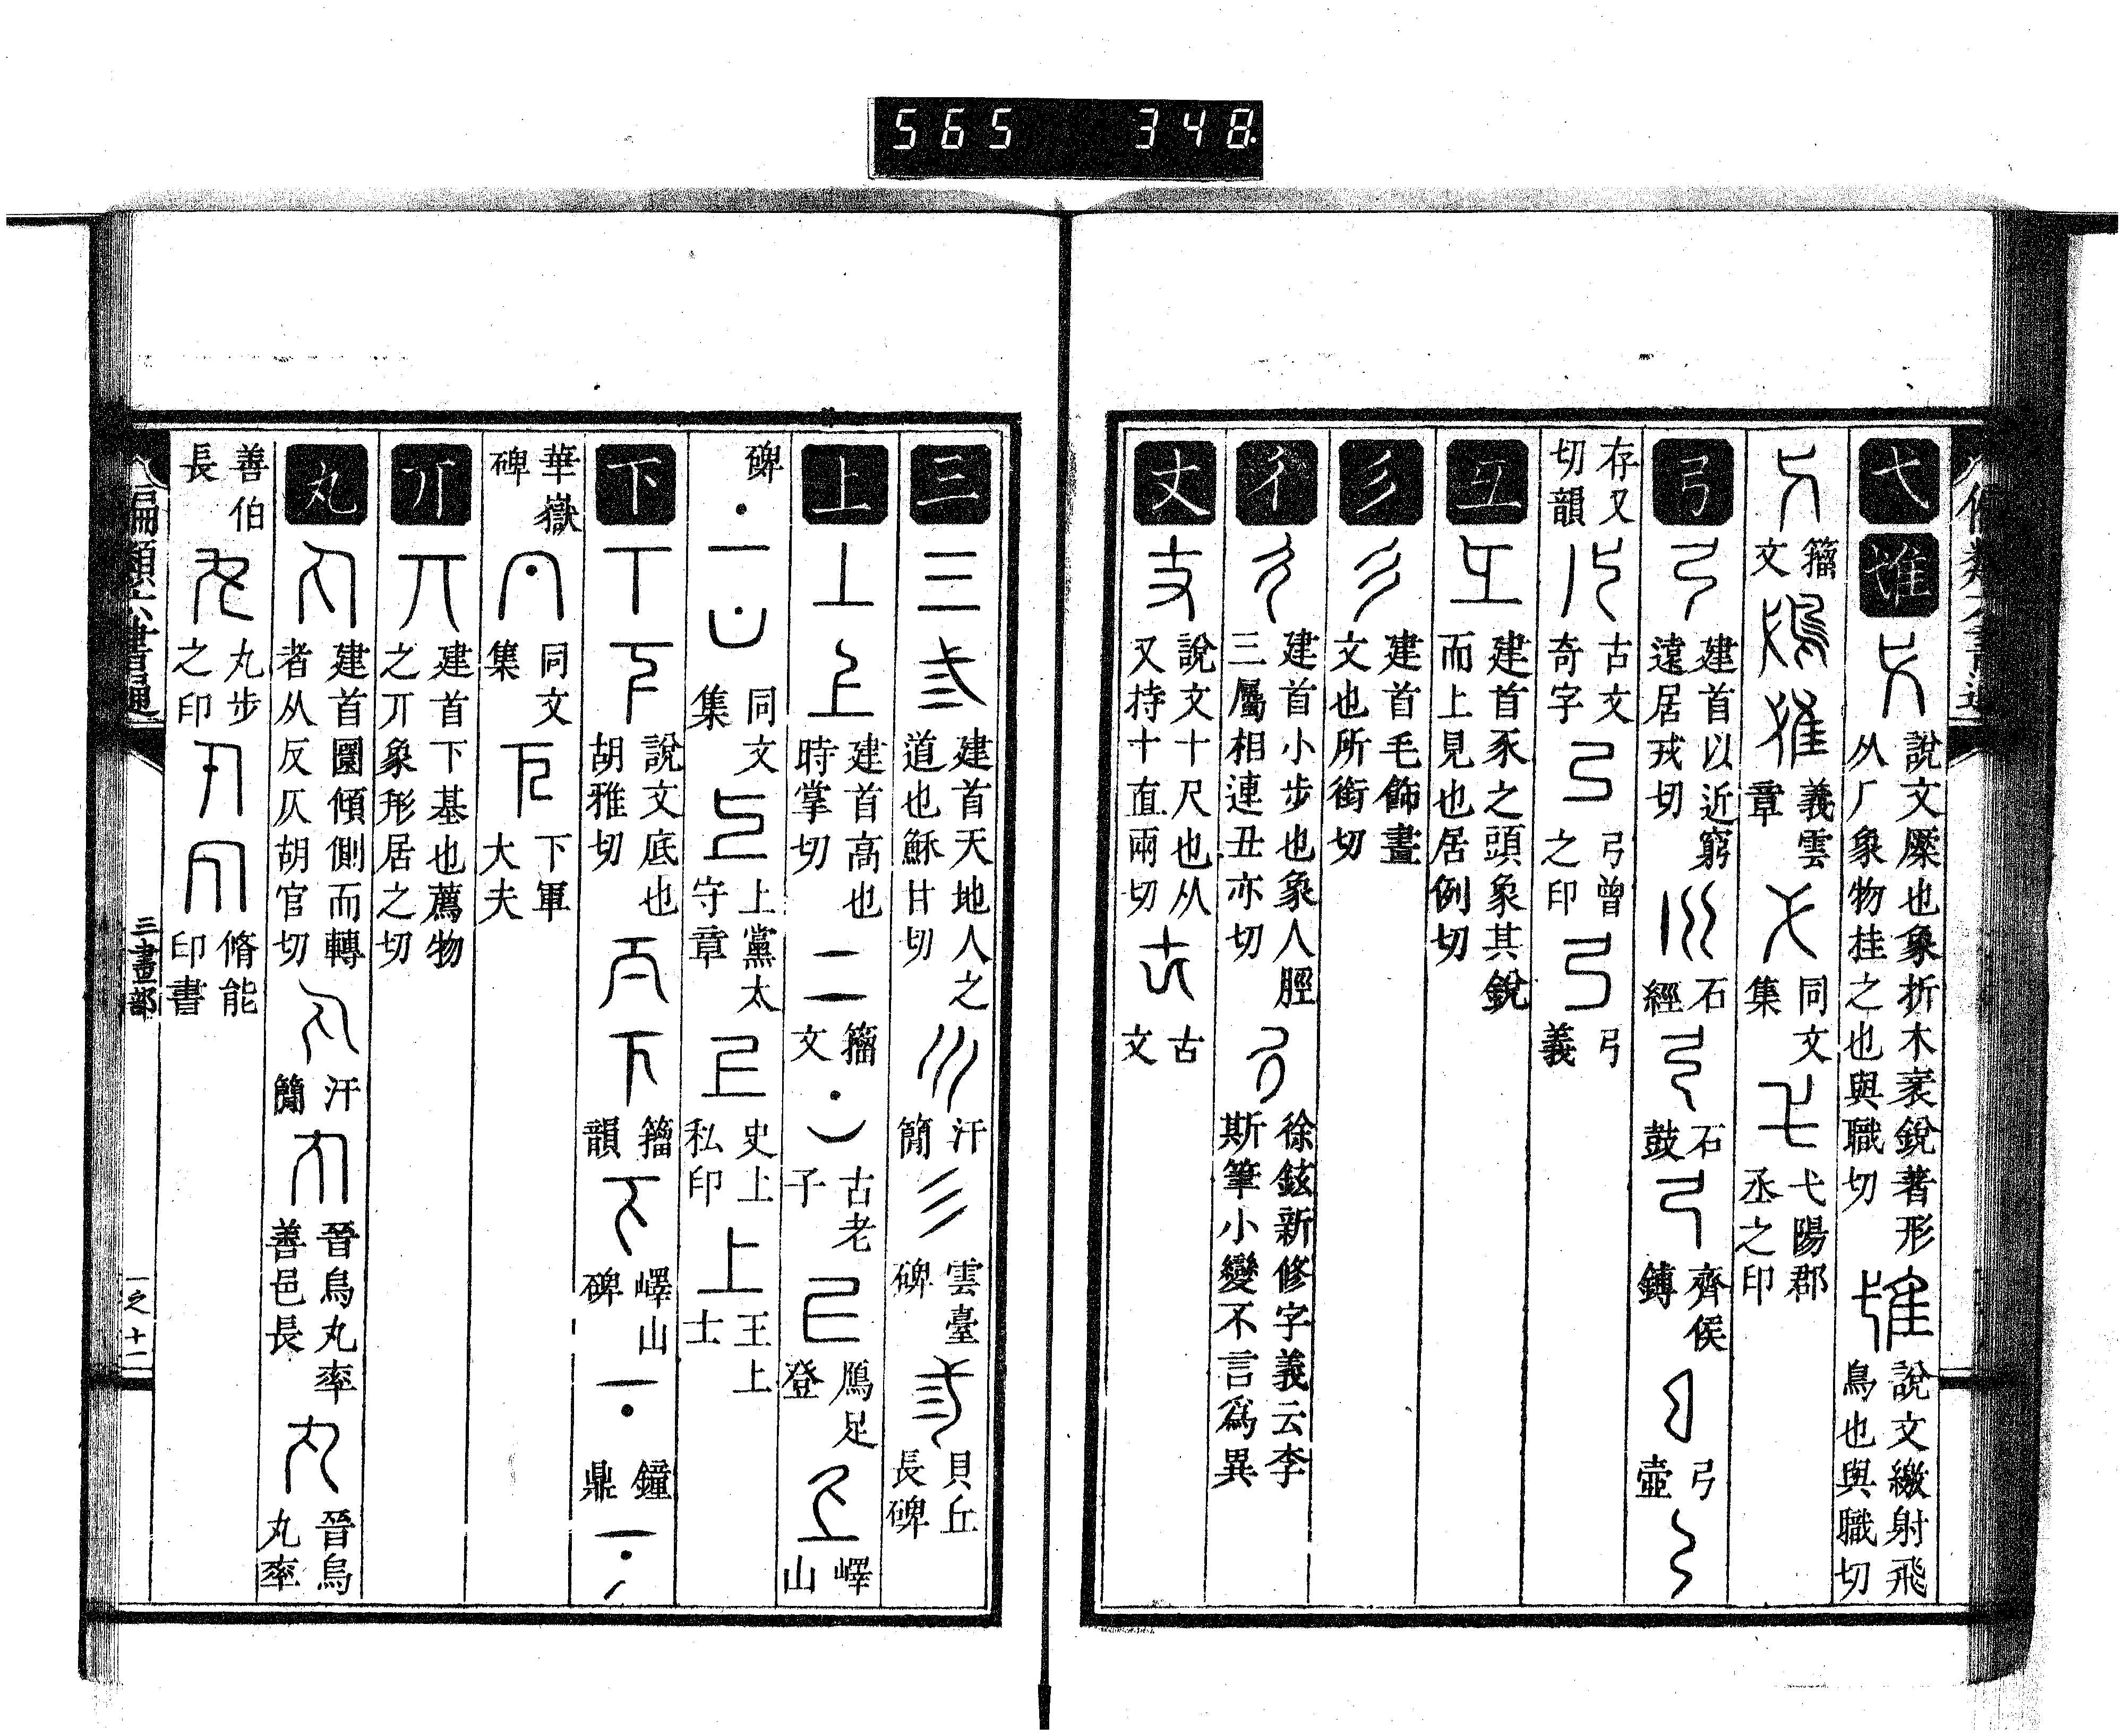 565 348
弋 �
說文橜也象折木衺銳著形
从厂象物挂之也與職切
說文繳射飛
鳥也與職切
籀文
義雲章
同文集
弋陽郡丞之印
弓
建首以近窮
遠居戎切
石經
石鼓
齊侯鎛
弓壺
存又切韻
古文奇字
弓曾之印
弓義
彑
建首豕之頭象其銳
而上見也居例切
彡
建首毛飾畫
文也所銜切
彳
建首小步也象人脛
三屬相連丑亦切
徐鉉新修字義云李
斯筆小變不言爲異
丈
說文十尺也从
又持十直兩切
古文
三
建首天地人之
道也穌甘切
汗簡
雲臺碑
貝丘長碑
上
建首高也
時掌切
籀文
古老子
鴈足登
嶧山
碑
同文集
上黨太守章
史上私印
王上士
下
說文底也
胡雅切
籀韻
嶧山碑
鐘鼎
華嶽碑
同文集
下軍大夫
丌
建首下基也薦物
之丌象形居之切
丸
建首圜傾側而轉
者从反仄胡官切
汗簡
晉烏丸率
善邑長
晉烏丸率
善伯長
丸步之印
脩能印書
偏類六書通
三畫部
一之十二